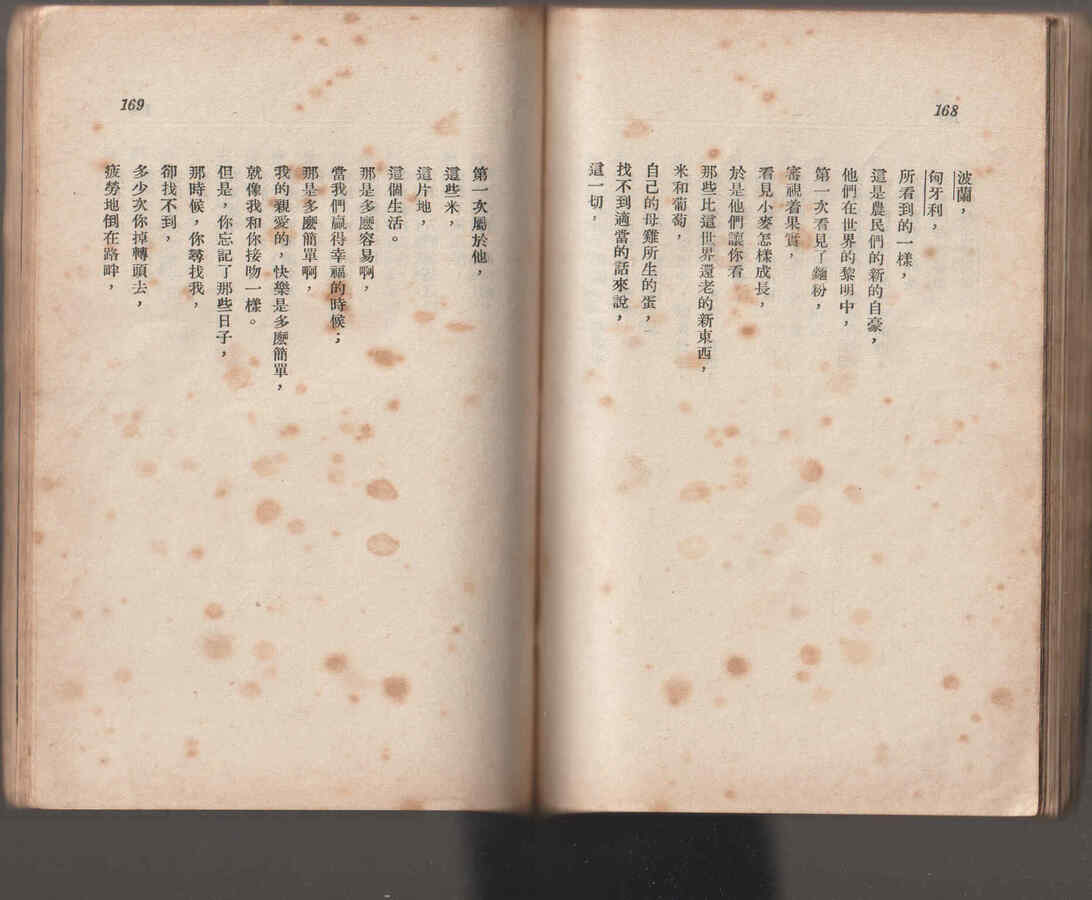 168
波蘭，
匈牙利，
所看到的一樣，
這是農民們的新的自豪，
他們在世界的黎明中，
第一次看見了麵粉，
審視着果實，
看見小麥怎樣成長，
於是他們讓你看
那些比這世界還老的新東西，
米和葡萄，
自己的母雞所生的蛋，
找不到適當的話來說，
這一切，
169
第一次屬於他，
這些米，
這片地，
這個生活。
那是多麼容易啊，
當我們贏得幸福的時候；
那是多麼簡單啊，
我的親愛的，快樂是多麼簡單，
就像我和你接吻一樣。
但是，你忘記了那些日子，
那時候，你尋找我，
卻找不到，
多少次你掉轉頭去，
疲勞地倒在路畔，